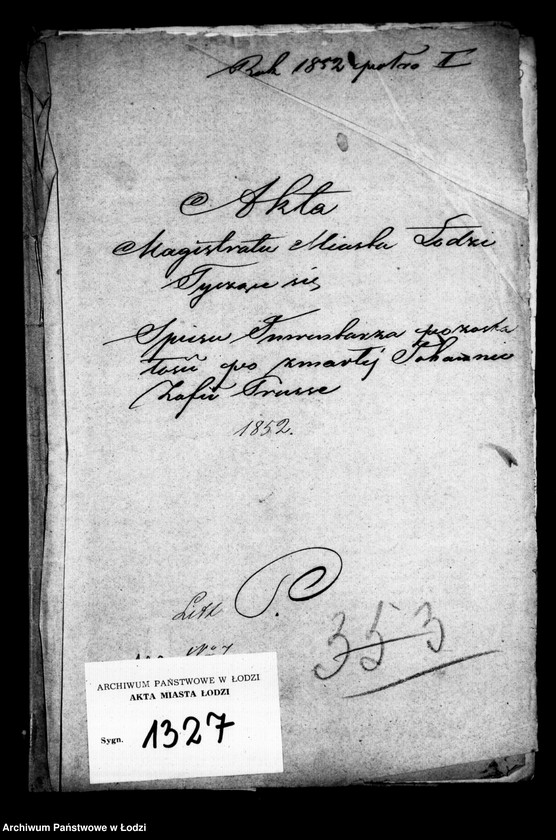 Rok 1852 półro II
Akta
Magistratu Miasta Łodzi
Tyczące się
Spisu Inwentarza pozosta
łości po zmarłej Johannie
Zofii
1852.
Lit P.
353
No 7
ARCHIWUM PAŃSTWOWE W ŁODZI
AKTA MIASTA ŁODZI
Sygn. 1327
Archiwum Państwowe w Łodzi